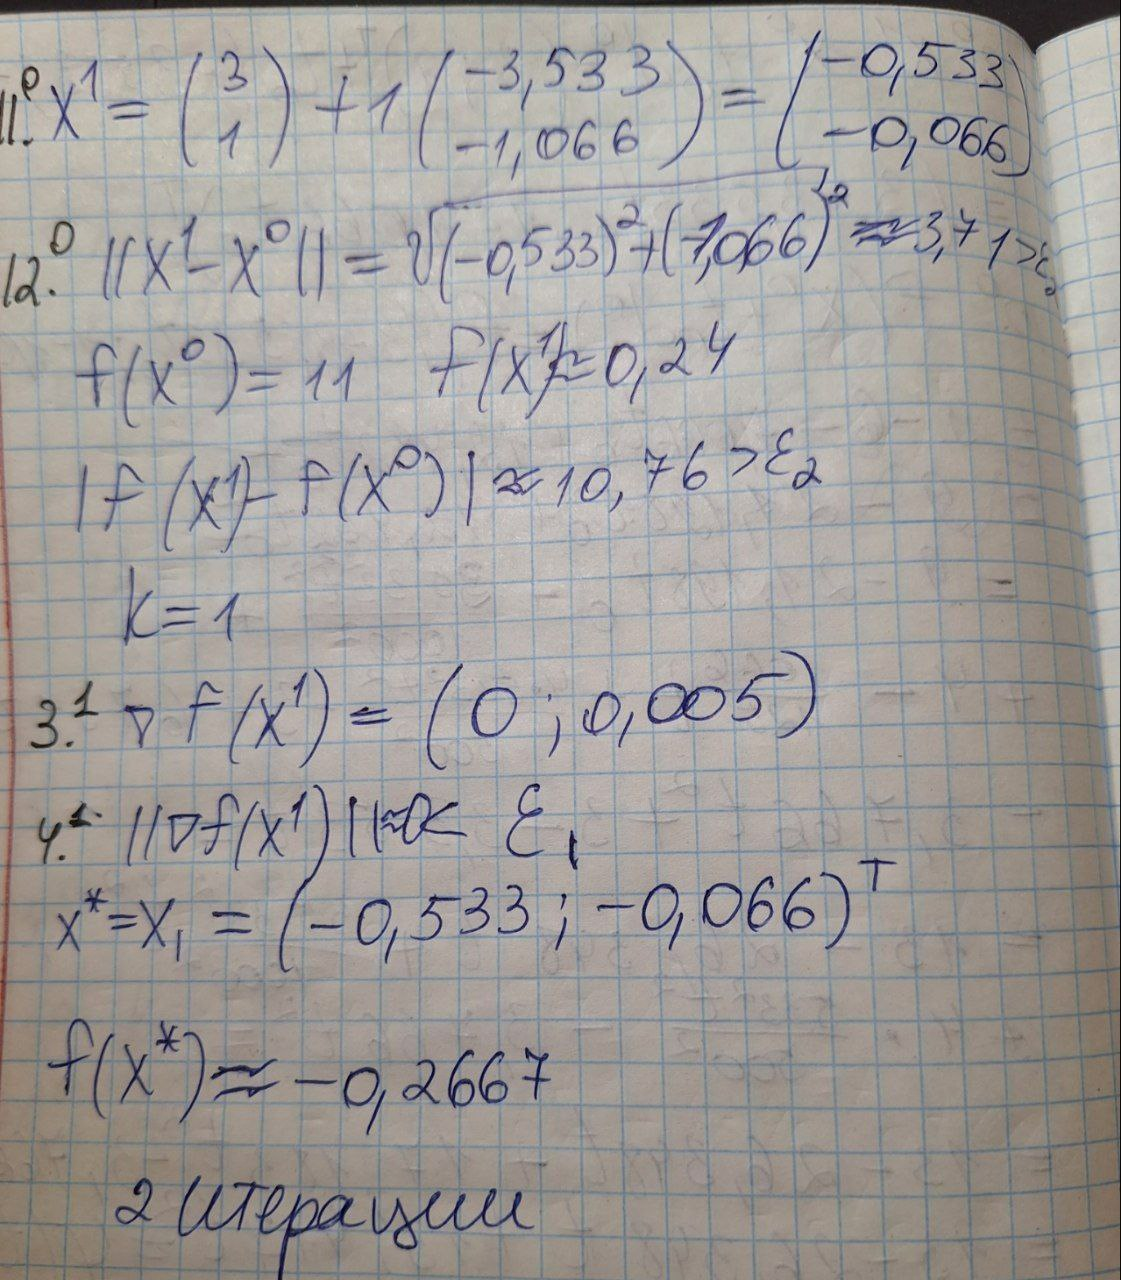 11.⁰ x¹ = (3 1) + 1 (-3,533 -1,066) = (-0,533 -0,066)
12.⁰ ||x¹ - x⁰|| = √(-0,533)² + (-1,066)² ≈ 3,71 > ε₂
f(x⁰) = 11 f(x¹) ≈ 0,24
|f(x¹) - f(x⁰)| ≈ 10,76 > ε₂
k = 1
3.¹ ∇f(x¹) = (0 ; 0,005)
4.¹ ||∇f(x¹)|| ≈ 0 < ε₁
x* = x₁ = (-0,533 ; -0,066)ᵀ
f(x*) ≈ -0,2667
2 итерации